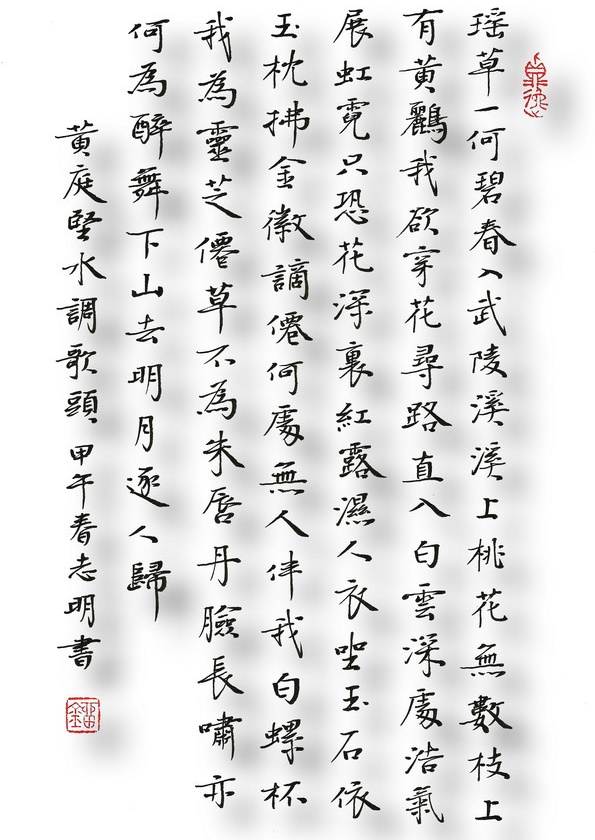 瑶草一何碧春入武陵溪溪上桃花無數枝上
有黃鸝我欲穿花尋路直入白雲深處浩氣
展虹霓只恐花深裏紅露濕人衣坐玉石依
玉枕拂金徽謫僊何處無人伴我白螺杯
我為靈芝僊草不為朱唇丹臉長嘯亦
何為醉舞下山去明月逐人歸
黃庭堅水調歌頭 甲午春志明書